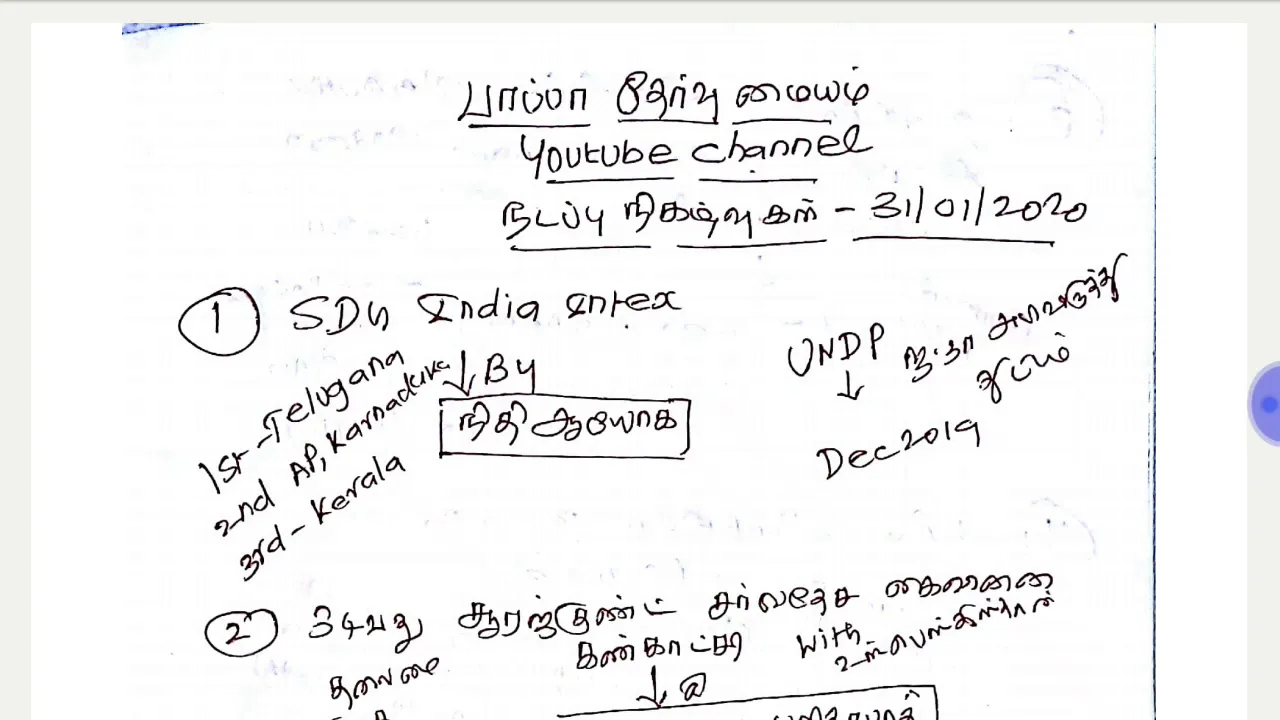 பாப்பா தேர்வு மையம்
Youtube channel
நடப்பு நிகழ்வுகள் - 31/01/2020
1 SDG India Intex
By
நிதி ஆயோக்
1st - Telugana
2nd AP, Karnaduka
3rd - Kerala
UNDP ஐ.நா அமைப்பு
திட்டம்
Dec 2019
2 34வது சூரஜ்குண்ட் சர்வதேச கைவினை
கண்காட்சி with
உஸ்பெஸ்கிஸ்தான்
தலைமை
@